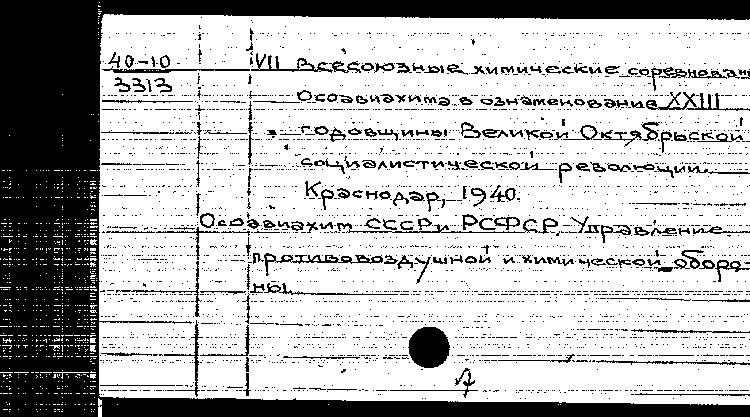 40-10
3313
VII Всесоюзные химические соревнован
Осоавиахима в ознаменование XXIII
годовщины Великой Октябрьской
социалистической революции.
Краснодар, 1940.
Осоавиахим СССР и РСФСР. Управление
противовоздушной и химической оборо-
ны.